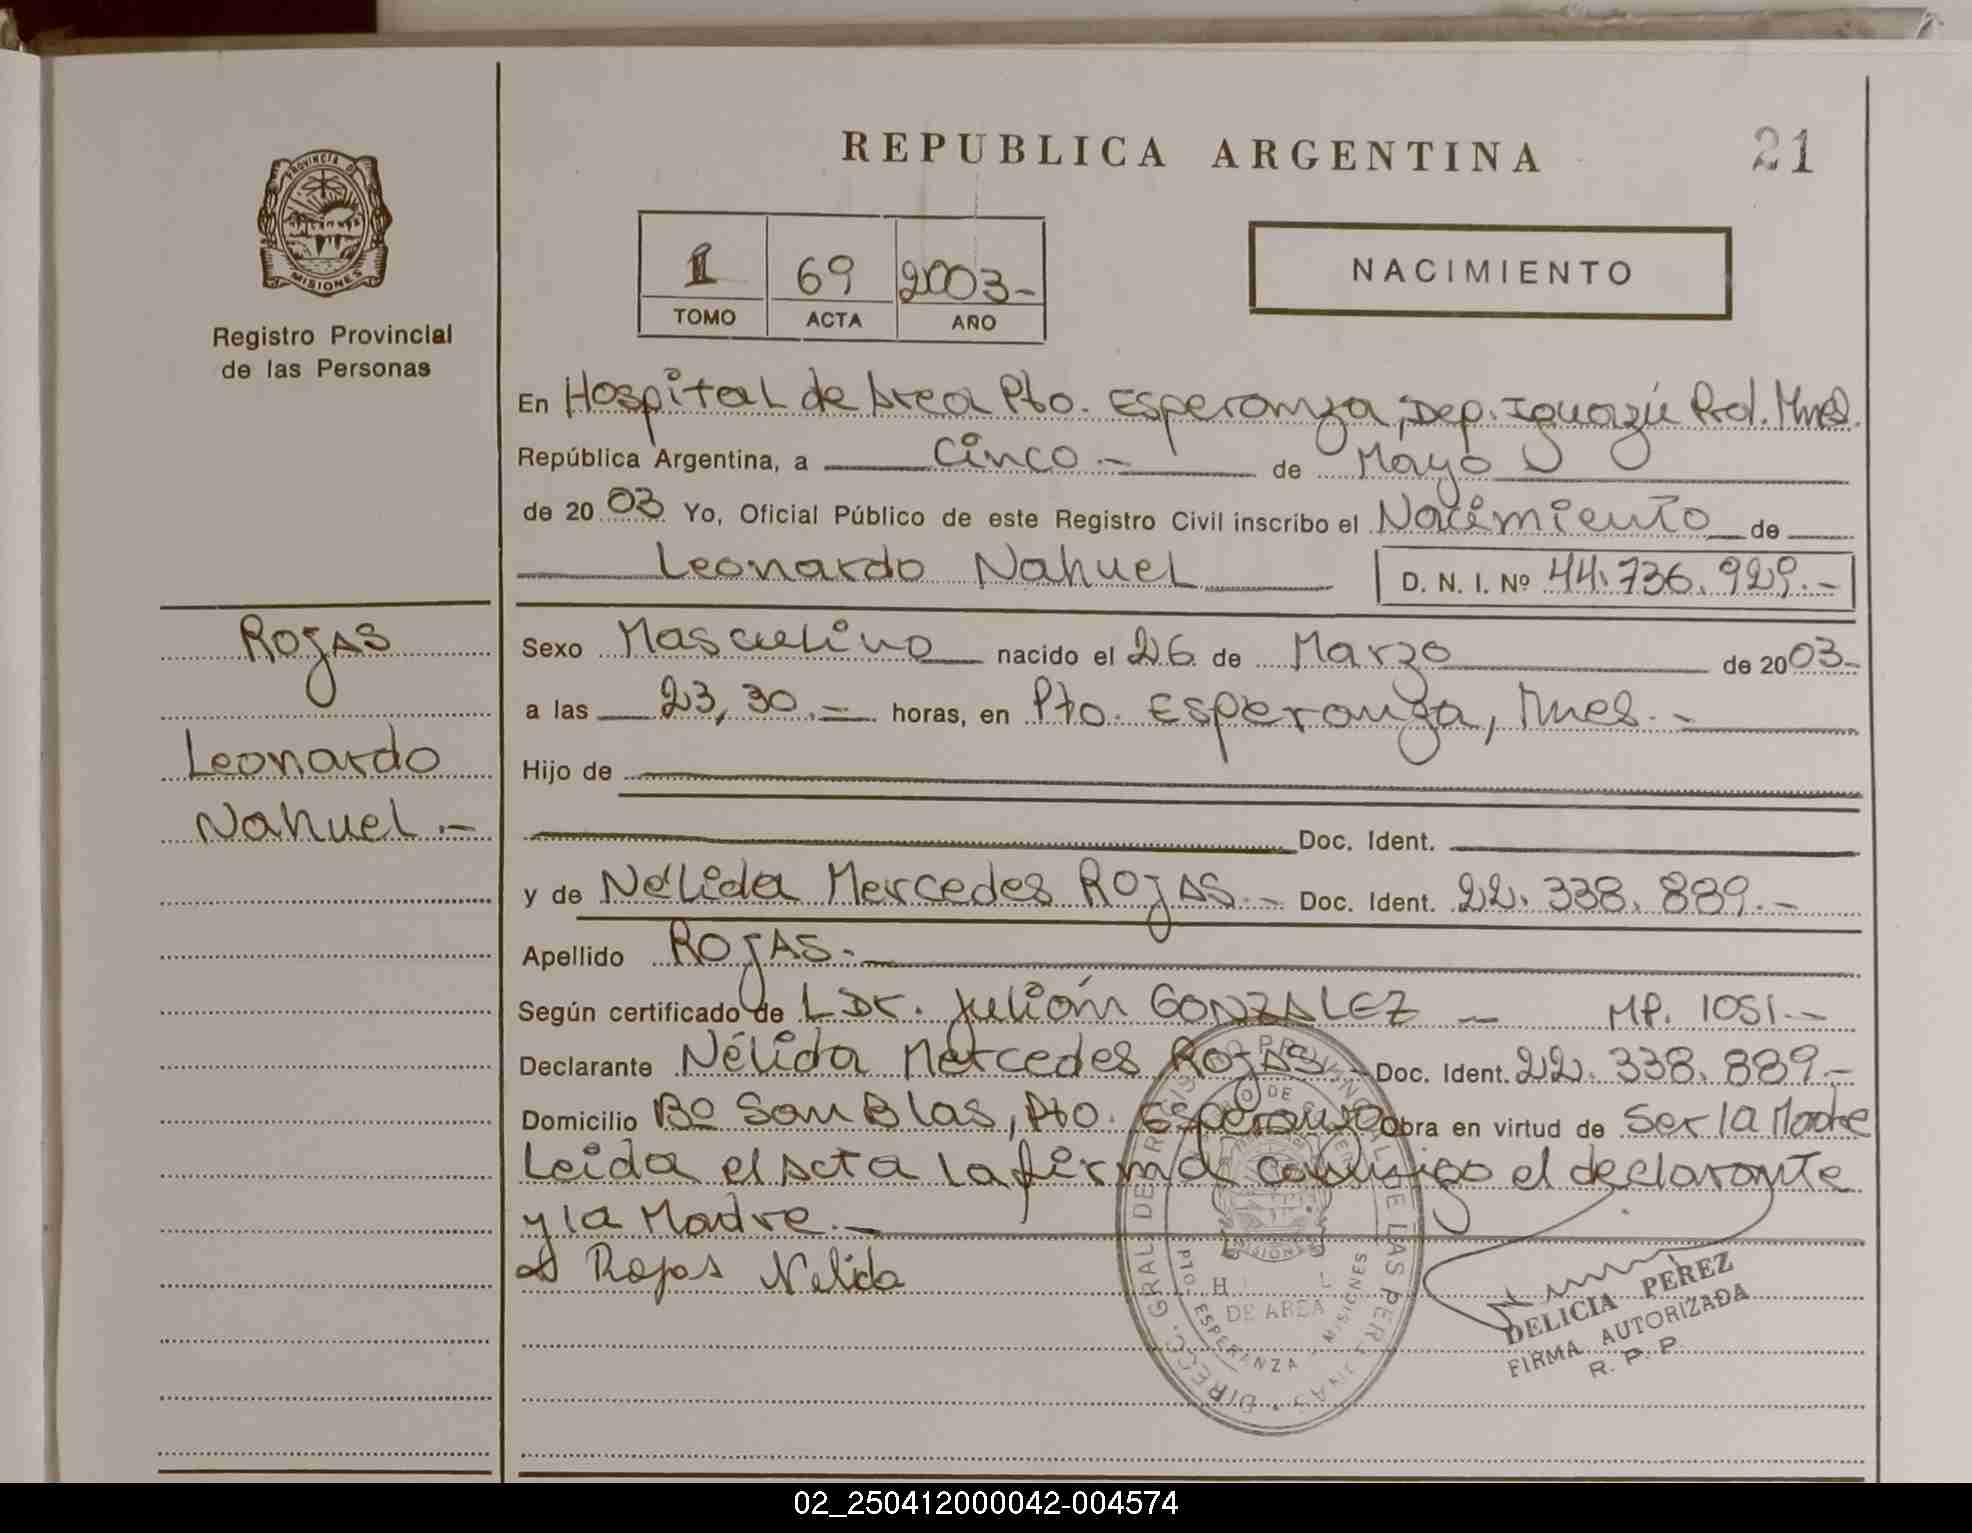 REPUBLICA ARGENTINA
21
PROVINCIA DE
MISIONES
Registro Provincial
de las Personas
1 69 2003-
TOMO ACTA AÑO
NACIMIENTO
En Hospital de Area Pto. Esperanza, Dep. Iguazú Mnes.
República Argentina, a Cinco.- de Mayo
de 2003 Yo, Oficial Público de este Registro Civil inscribo el Nacimiento de
Leonardo Nahuel D. N. I. Nº 44.736.929.-
ROJAS
Leonardo
Nahuel.-
Sexo Masculino nacido el 26 de Marzo de 2003-
a las 23,30.- horas, en Pto. Esperanza, Mnes.-
Hijo de
Doc. Ident.
y de Nélida Mercedes ROJAS.- Doc. Ident. 22.338.889.-
Apellido ROJAS.-
Según certificado de Dr. Julián GONZALEZ - MP. 1051.-
Declarante Nélida Mercedes ROJAS.- Doc. Ident. 22.338.889.-
Domicilio Bº San Blas, Pto. Esperanza Obra en virtud de Ser la Madre
Leida el Acta la firma conmigo el declarante
y la Madre.-
Rojas Nelida
DIRECC. GRAL DE REGISTRO PROVINCIAL DE LAS PERSONAS
DE AREA
PTO. ESPERANZA - MISIONES
DELICIA PEREZ
FIRMA AUTORIZADA
R. P. P.
02_250412000042-004574